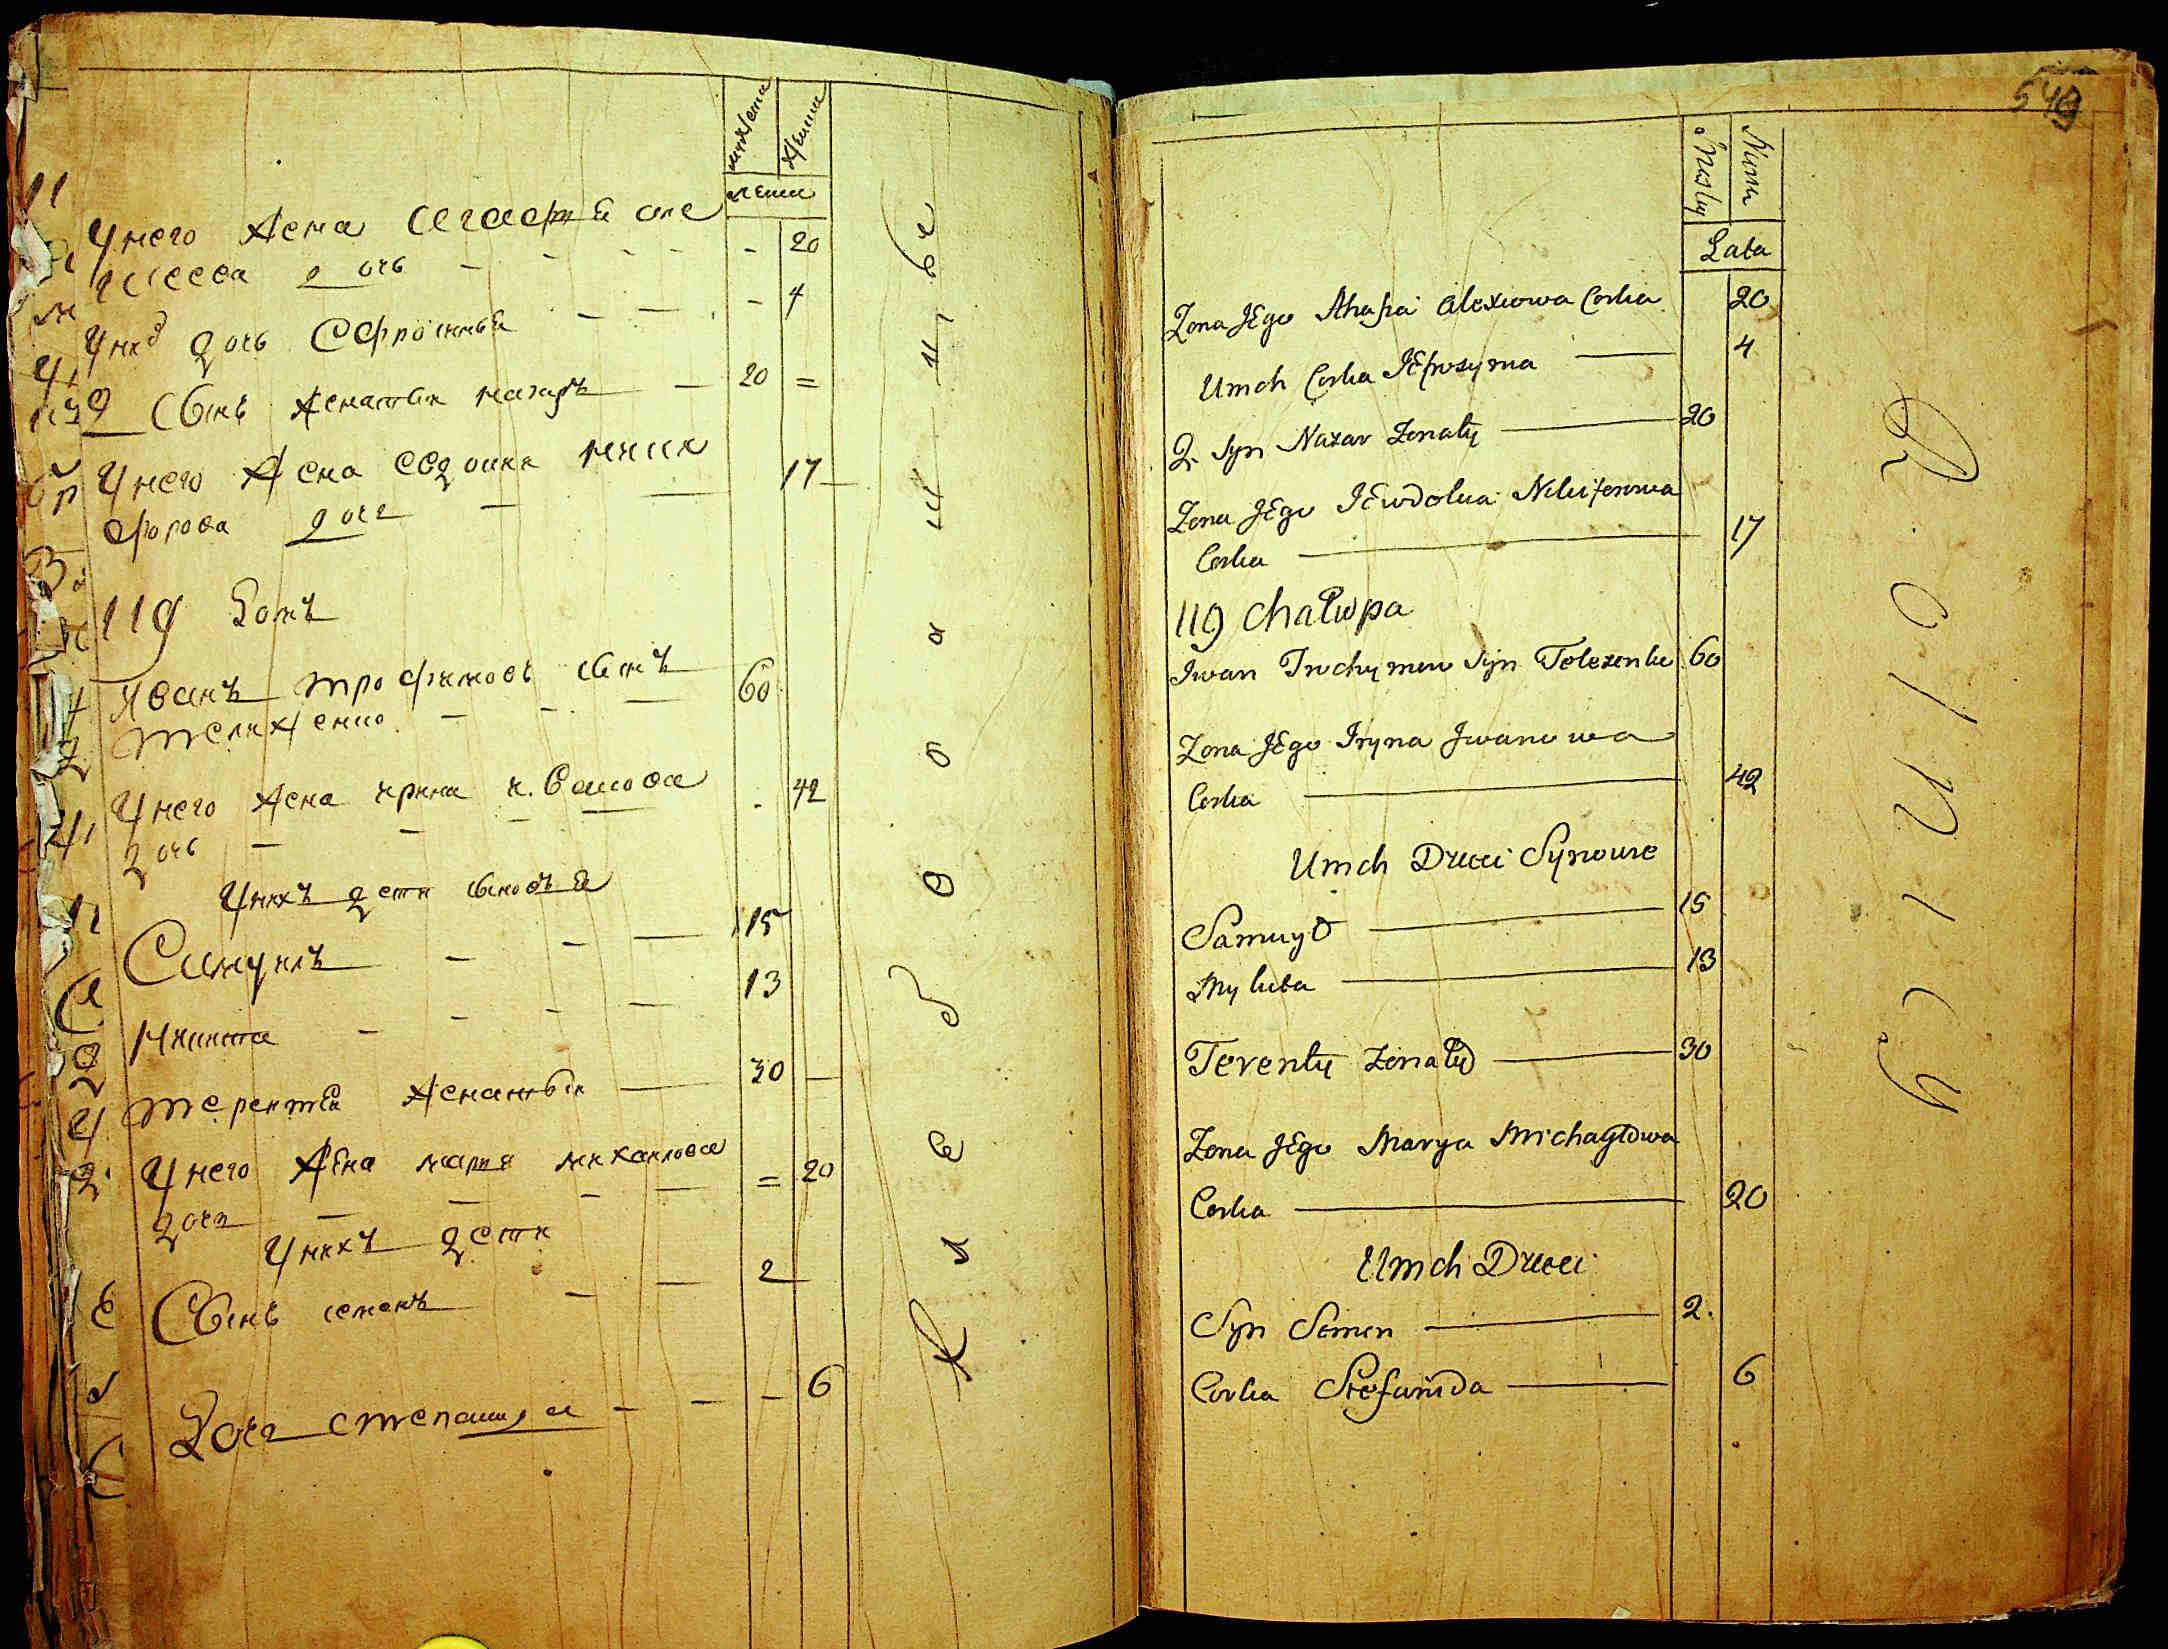 мужеска
женска
лета
У него жена Агафия але
ксеева дочь - - - - - 20
У них дочь Ефросиния - - - 4
2 Сынъ женатый назаръ - 20 =
У него жена евдокия ники
форова дочь - - 17
119 Домъ
Иванъ трофимовъ сынъ
тележенко - - - 60
У него жена ирина ивановa
дочь - - - - 42
У нихъ дети сыновья
Самуилъ - - - 15
Никита - - - - 13
терентий женатый - 30 -
У него жена мария михаилова
дочь - - - - = 20
У нихъ дети
Сынъ семенъ - - 2
Дочь степанида - - - 6
Хлебо
549
Męzky
Niewia
Lata
Zona Jego Ahafia Alexiowa Corka 20
Umch Corka Jefrosyma 4
2. Syn Nazar Zonaty 20
Zona Jego Jewdokia Nikiforowa
Corka 17
119 Chałupa
Iwan Trochymow Syn Telezenko 60
Zona Jego Iryna Iwanowa
Corka 42
Umch Dzieci Synowie
Samuył 15
Mykita 13
Terenty Zonaty 30
Zona Jego Marya Michayłowa
Corka 20
Umch Dzieci
Syn Semen 2.
Corka Stefanida 6
Rolnicy